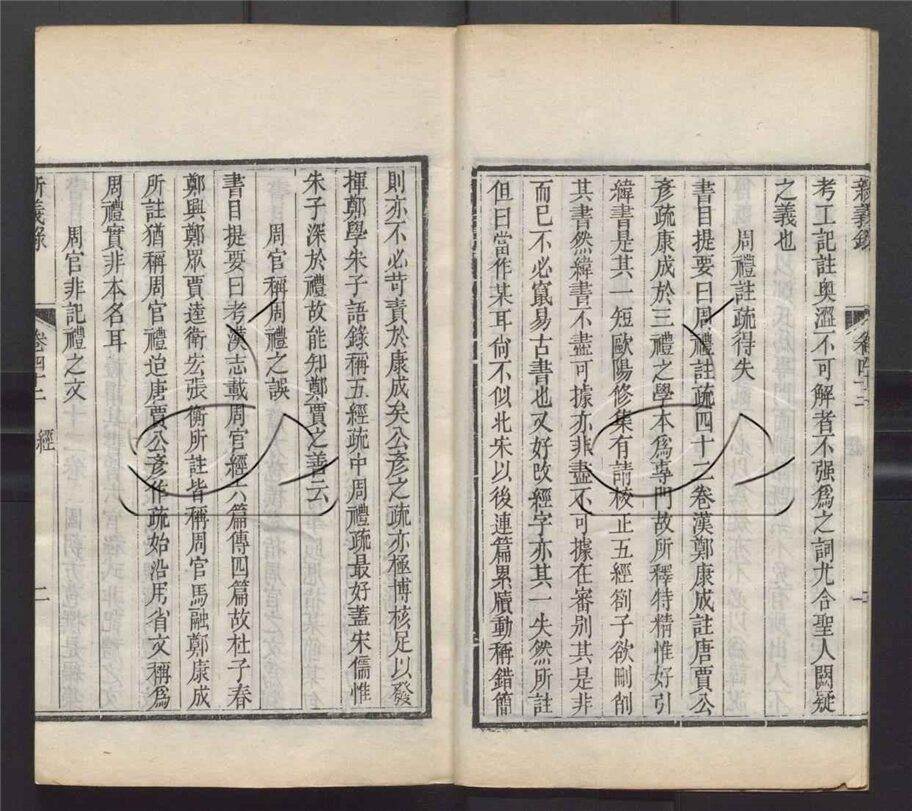 考工記註奧澀不可解者不强爲之詞尤合聖人闕疑
之義也
周禮註疏得失
書目提要曰周禮註疏四十二卷漢鄭康成註唐賈公
彥疏康成於三禮之學本爲專門故所釋特精惟好引
緯書是其一短歐陽修集有請校正五經劄子欲刪削
其書然緯書不盡可據亦非盡不可據在審別其是非
而已不必竄易古書也又好改經字亦其一失然所註
但曰當作某耳尙不似北宋以後連篇累牘動稱錯簡
則亦不必苛責於康成矣公彥之疏亦極博核足以發
揮鄭學朱子語錄稱五經疏中周禮疏最好蓋宋儒惟
朱子深於禮故能知鄭賈之善云
周官稱周禮之誤
書目提要曰考漢志載周官經六篇傳四篇故杜子春
鄭興鄭眾賈逵衛宏張衡所註皆稱周官馬融鄭康成
所註猶稱周官禮迨唐賈公彥作疏始沿用省文稱爲
周禮實非本名耳
周官非記禮之文
義錄 卷四十二 經 二